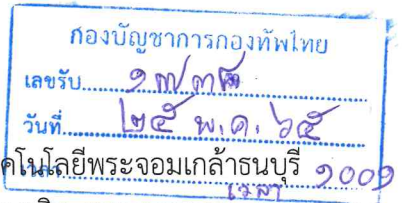 กองบัญชาการกองทัพไทย
เลขรับ
วันที่ ๒๕ พ.ค. ๖๕
คโนโลยีพระจอมเกล้าธนบุรี ๑๐๐๑
เวลา